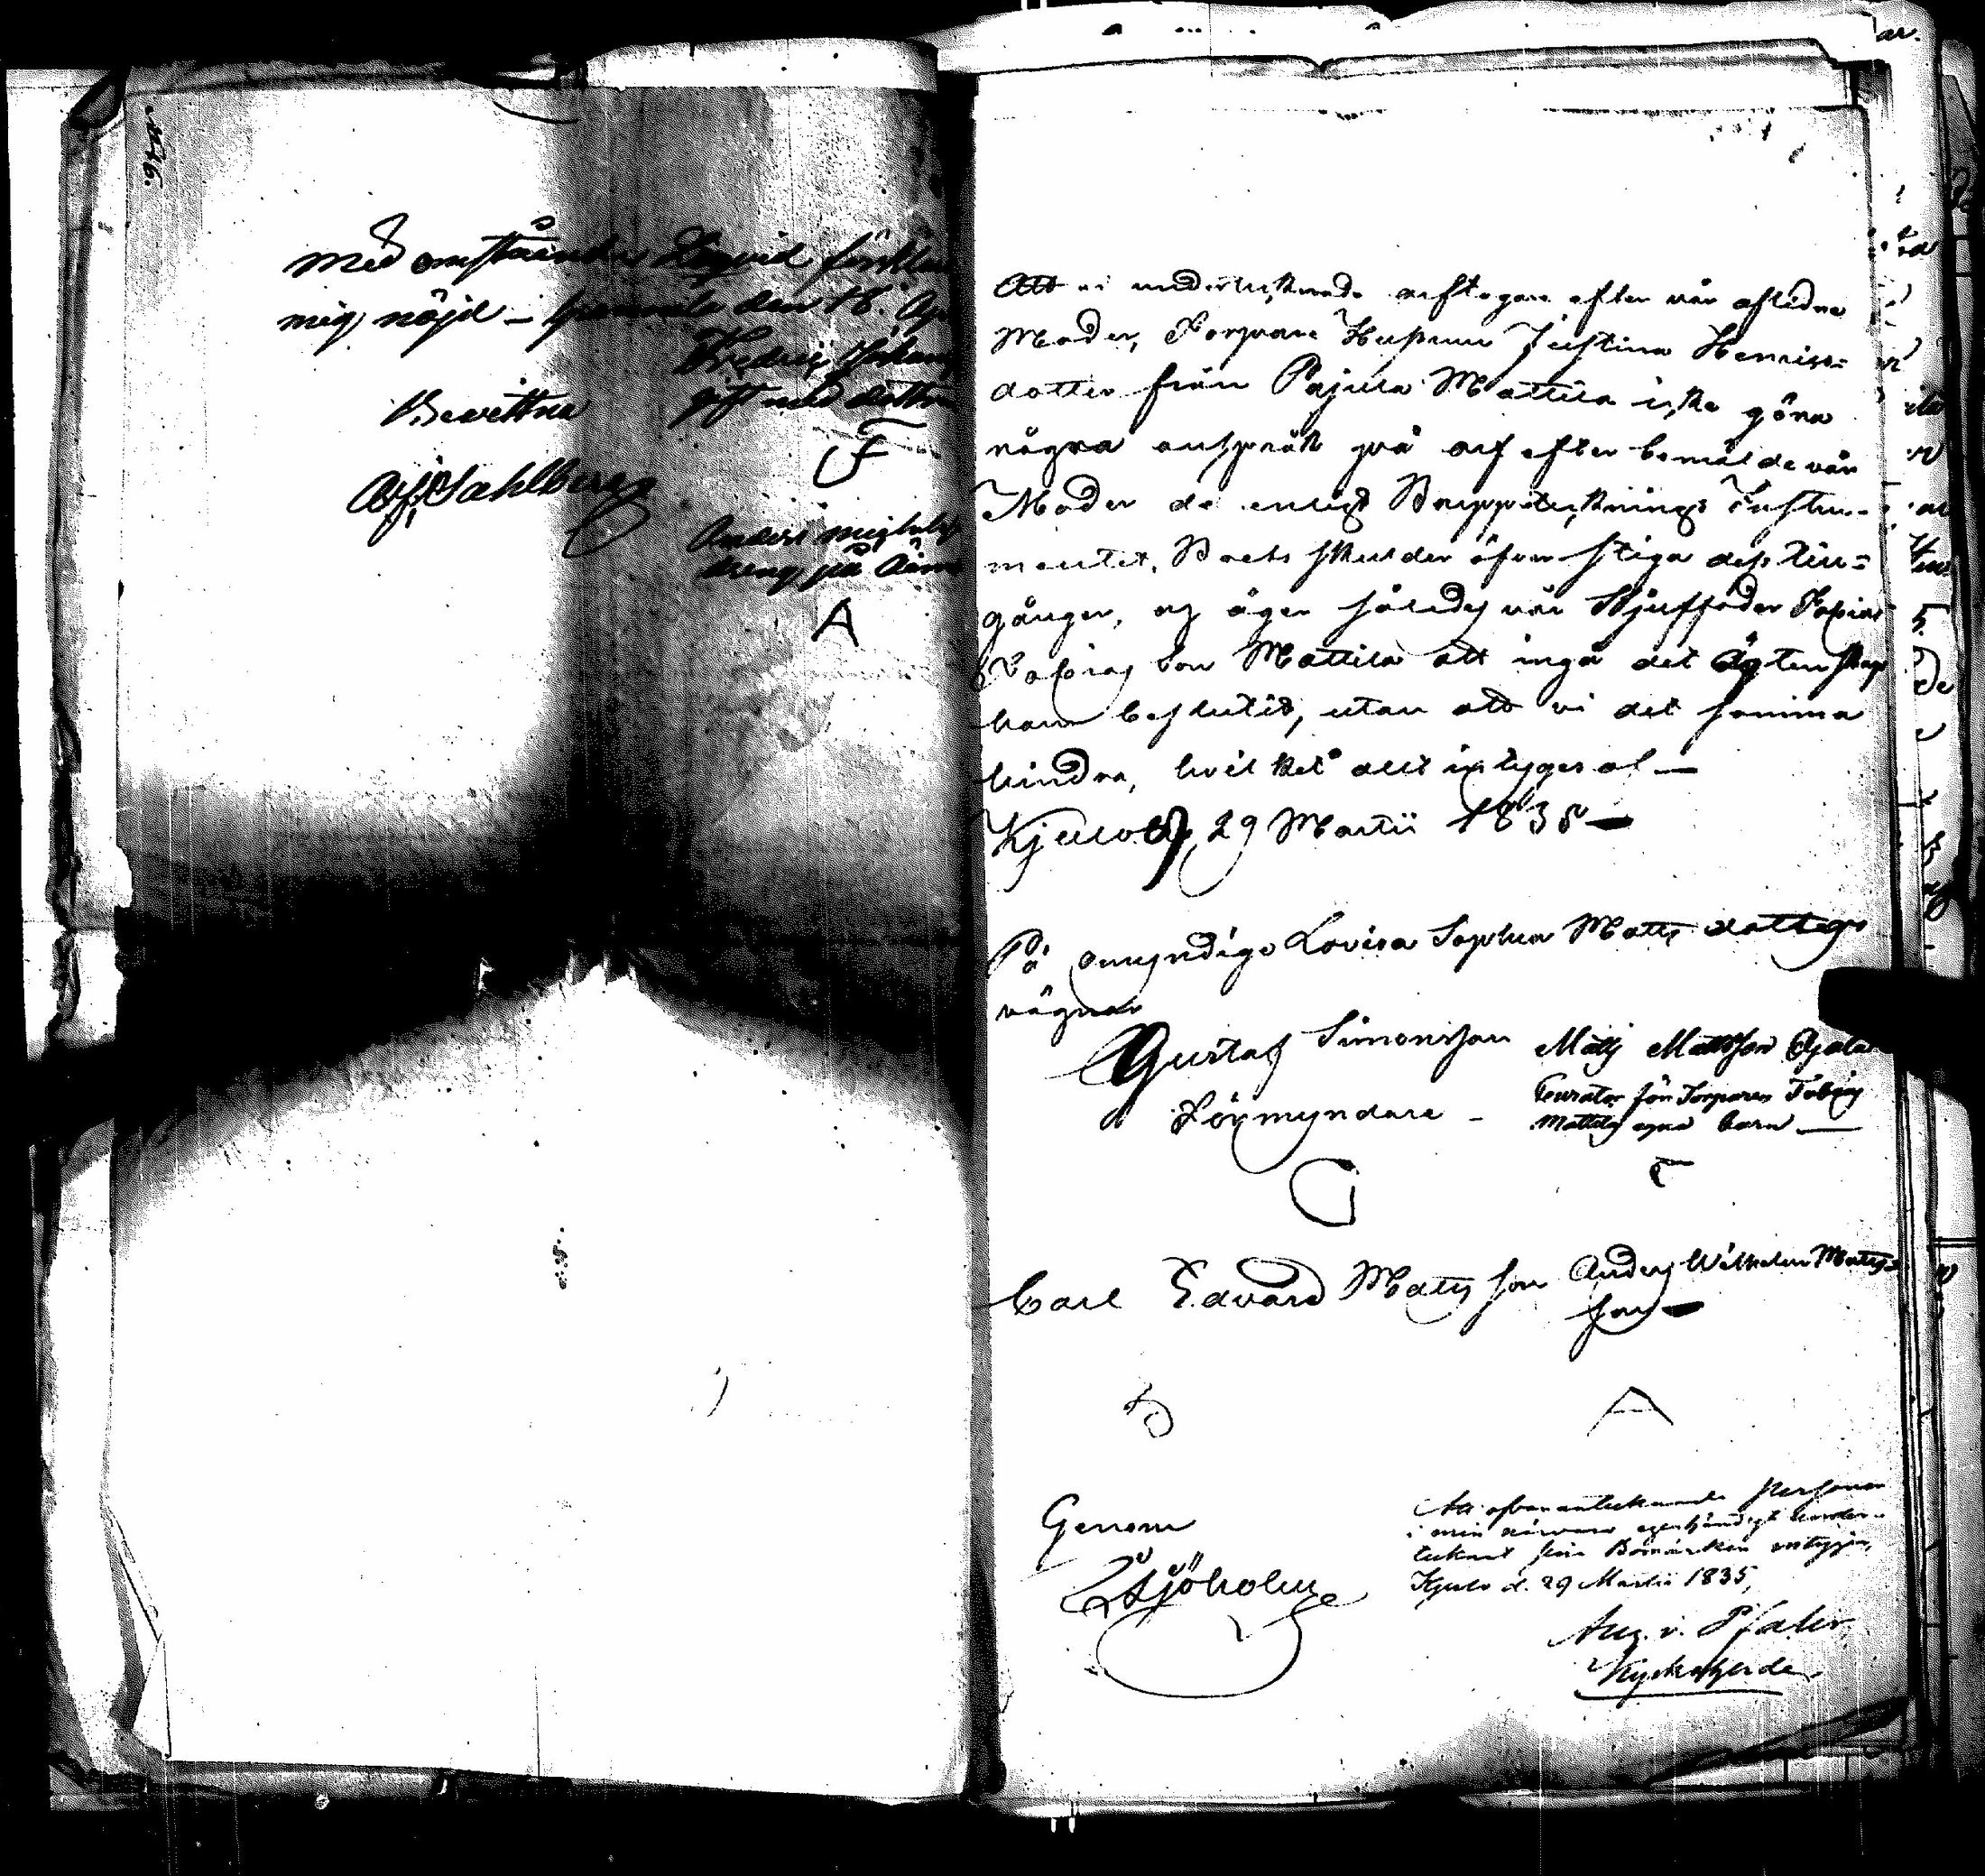 Med omstående förklarar
mig nöjd – den 18. Ap
Fredric Johans
gift med dottren
Bevittna
F
Anders Michels
dreng på
A
Att vi undertecknade arftagare efter vår aflidne
Moder, Torpare Hustrun Justina Henriks=
dotter från Pajula Mattila icke göra
några anspråk på arf efter bemälde vår
Moder då enligt Bouppteknings Instru-
mentet, Boets skulder öfverstiga dess till=
gångar, og äger således vår Stjuffader Tobias
Tobias son Mattila att ingå det ägtenskap
han beslutit, utan att vi det samma
hindra, hvilket allt intygas af —
Kjulo d. 29 Martii 1835 —
På omyndige Lovisa Sophia Matts dotters
vägnar
Gustaf Simonsson
Förmyndare –
Matts Mattsson
Curator för Torparen Tobias
Mattila egna barn —
G
Carl Edvard Mats son
Anders Wilhelm Mats=
son —
A
Genom
Sjöholm
Att ofvanantecknade personer
i min närvaro egenhändigt under-
teknat sina Bomärken intygar,
Kjulo d. 29 Martii 1835,
Aug. v. Pfaler
Kyrkoherde